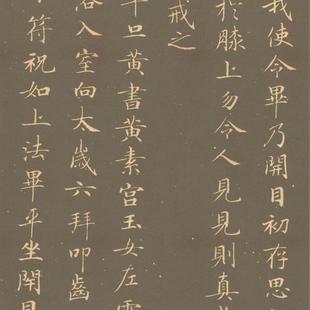 我使令畢乃開目初存思
於膝上勿令人見見則真
戒之
平旦黄書黄素宫玉女左
入室向太歲六拜叩齒
符祝如上法畢平坐閉